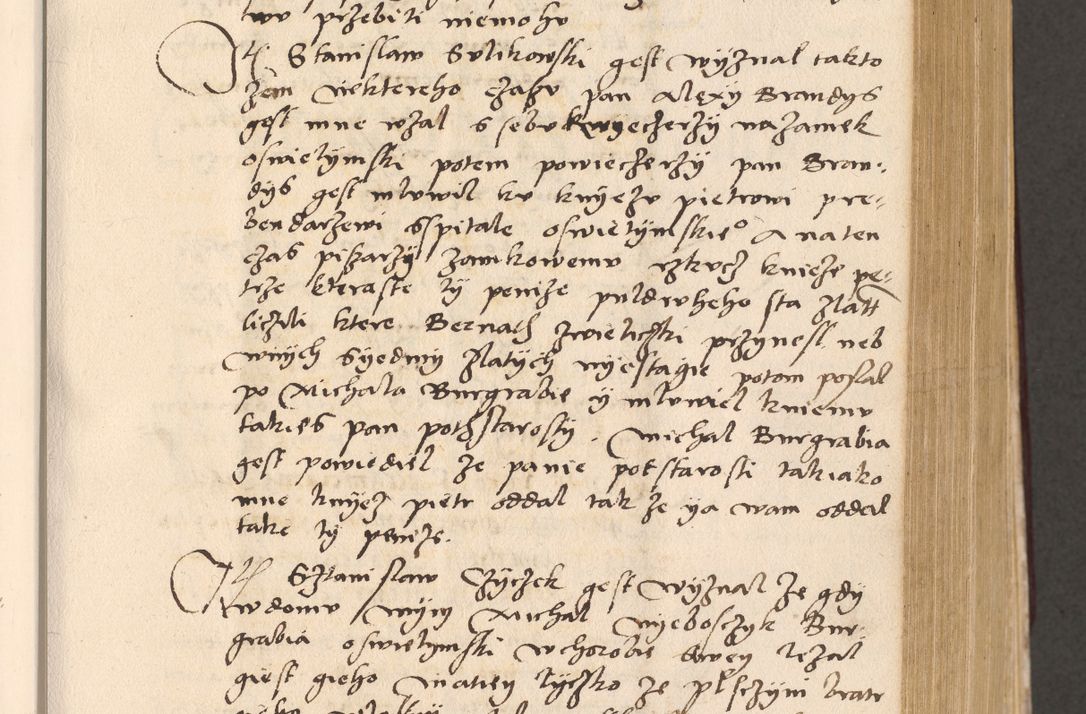 twu przebiti niemohu
Jtē Stanislaw Sulikowski gest wyznal takto
zem niektereho czasu pan Alexy Brandys
gest mne wzal s sebu kwyeczerzy na zamek
oswietymski potem powieczerzy pan Bran⸗
dys gest mluwil ku knyezu pietrowi pre⸗
bendarzewi sspitale oswietymskieº A na ten
czas pisarzy zamkowemu rzkucz knieze pe⸗
trze kteraste ty penize puldruheho sta zlatt
liczili ktere Bernath zwieliczki przynesl neb
wnych Syedmy zlatych nyestagie potom poslal
po Michala Burgrabie y mluwiel kniemu
takies pan pothstarosty. Michal Burgrabia
gest powiediel ze panie potstarosti takiako
mne knyez pietr oddal tak ze ya wam oddal
take ty penize.
Jtē Sztanislaw Zyczek gest wyznal ze gdy
wdomu mym Michal nyeboszyk Bur⸗
grabia oswietymski wchorobie swey lezal
giest gieho Matiey Lyczko ze plsczym bratr